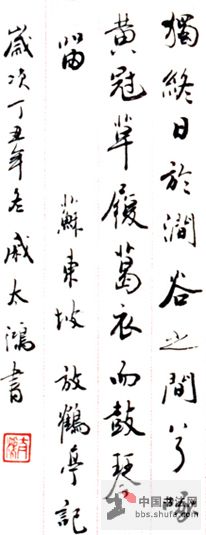 獨終日於澗谷之間兮
黄冠草履葛衣而鼓琴
留 蘇東坡放鶴亭記
歲次丁丑年冬戚太鴻書
中国书法网
bbs.shufa.com